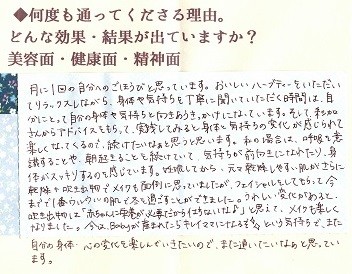 ◆何度も通ってくださる理由。
どんな効果・結果が出ていますか？
美容面・健康面・精神面
月に1回の自分へのごほうびと思っています。おいしいハーブティーをいただい
てリラックスしながら、身体や気持ちを丁寧に聞いていただく時間は、自
分にとって自分の身体や気持ちと向きあうきっかけになっています。そして、
さんからアドバイスをもらって、実践してみると身体と気持ちの変化が感じられて
楽しくなってくるので、続けたいなぁと思うと思います。私の場合は、呼吸を意
識することや、朝起きることを続けていて、気持ちが前向きになれたり、身
体がスッキリするのを感じています。妊娠してから、元々乾燥しやすい肌がさらに
乾燥や吹き出物でメイクも面倒に思っていましたが、フェイシャルをしてもらって今
までで1番ウルウルの肌で冬を過ごすことができました。うれしい変化があると、
吹き出物は「赤ちゃんに栄養が必要だからはちないな♪」と思えて、メイクも楽しく
なりました。今は、Babyが産まれたらキレイママになるぞ という気持ちで、また
自分の身体・心の変化を楽しんでいきたいので、また通いたいなぁと思ってい
ます。